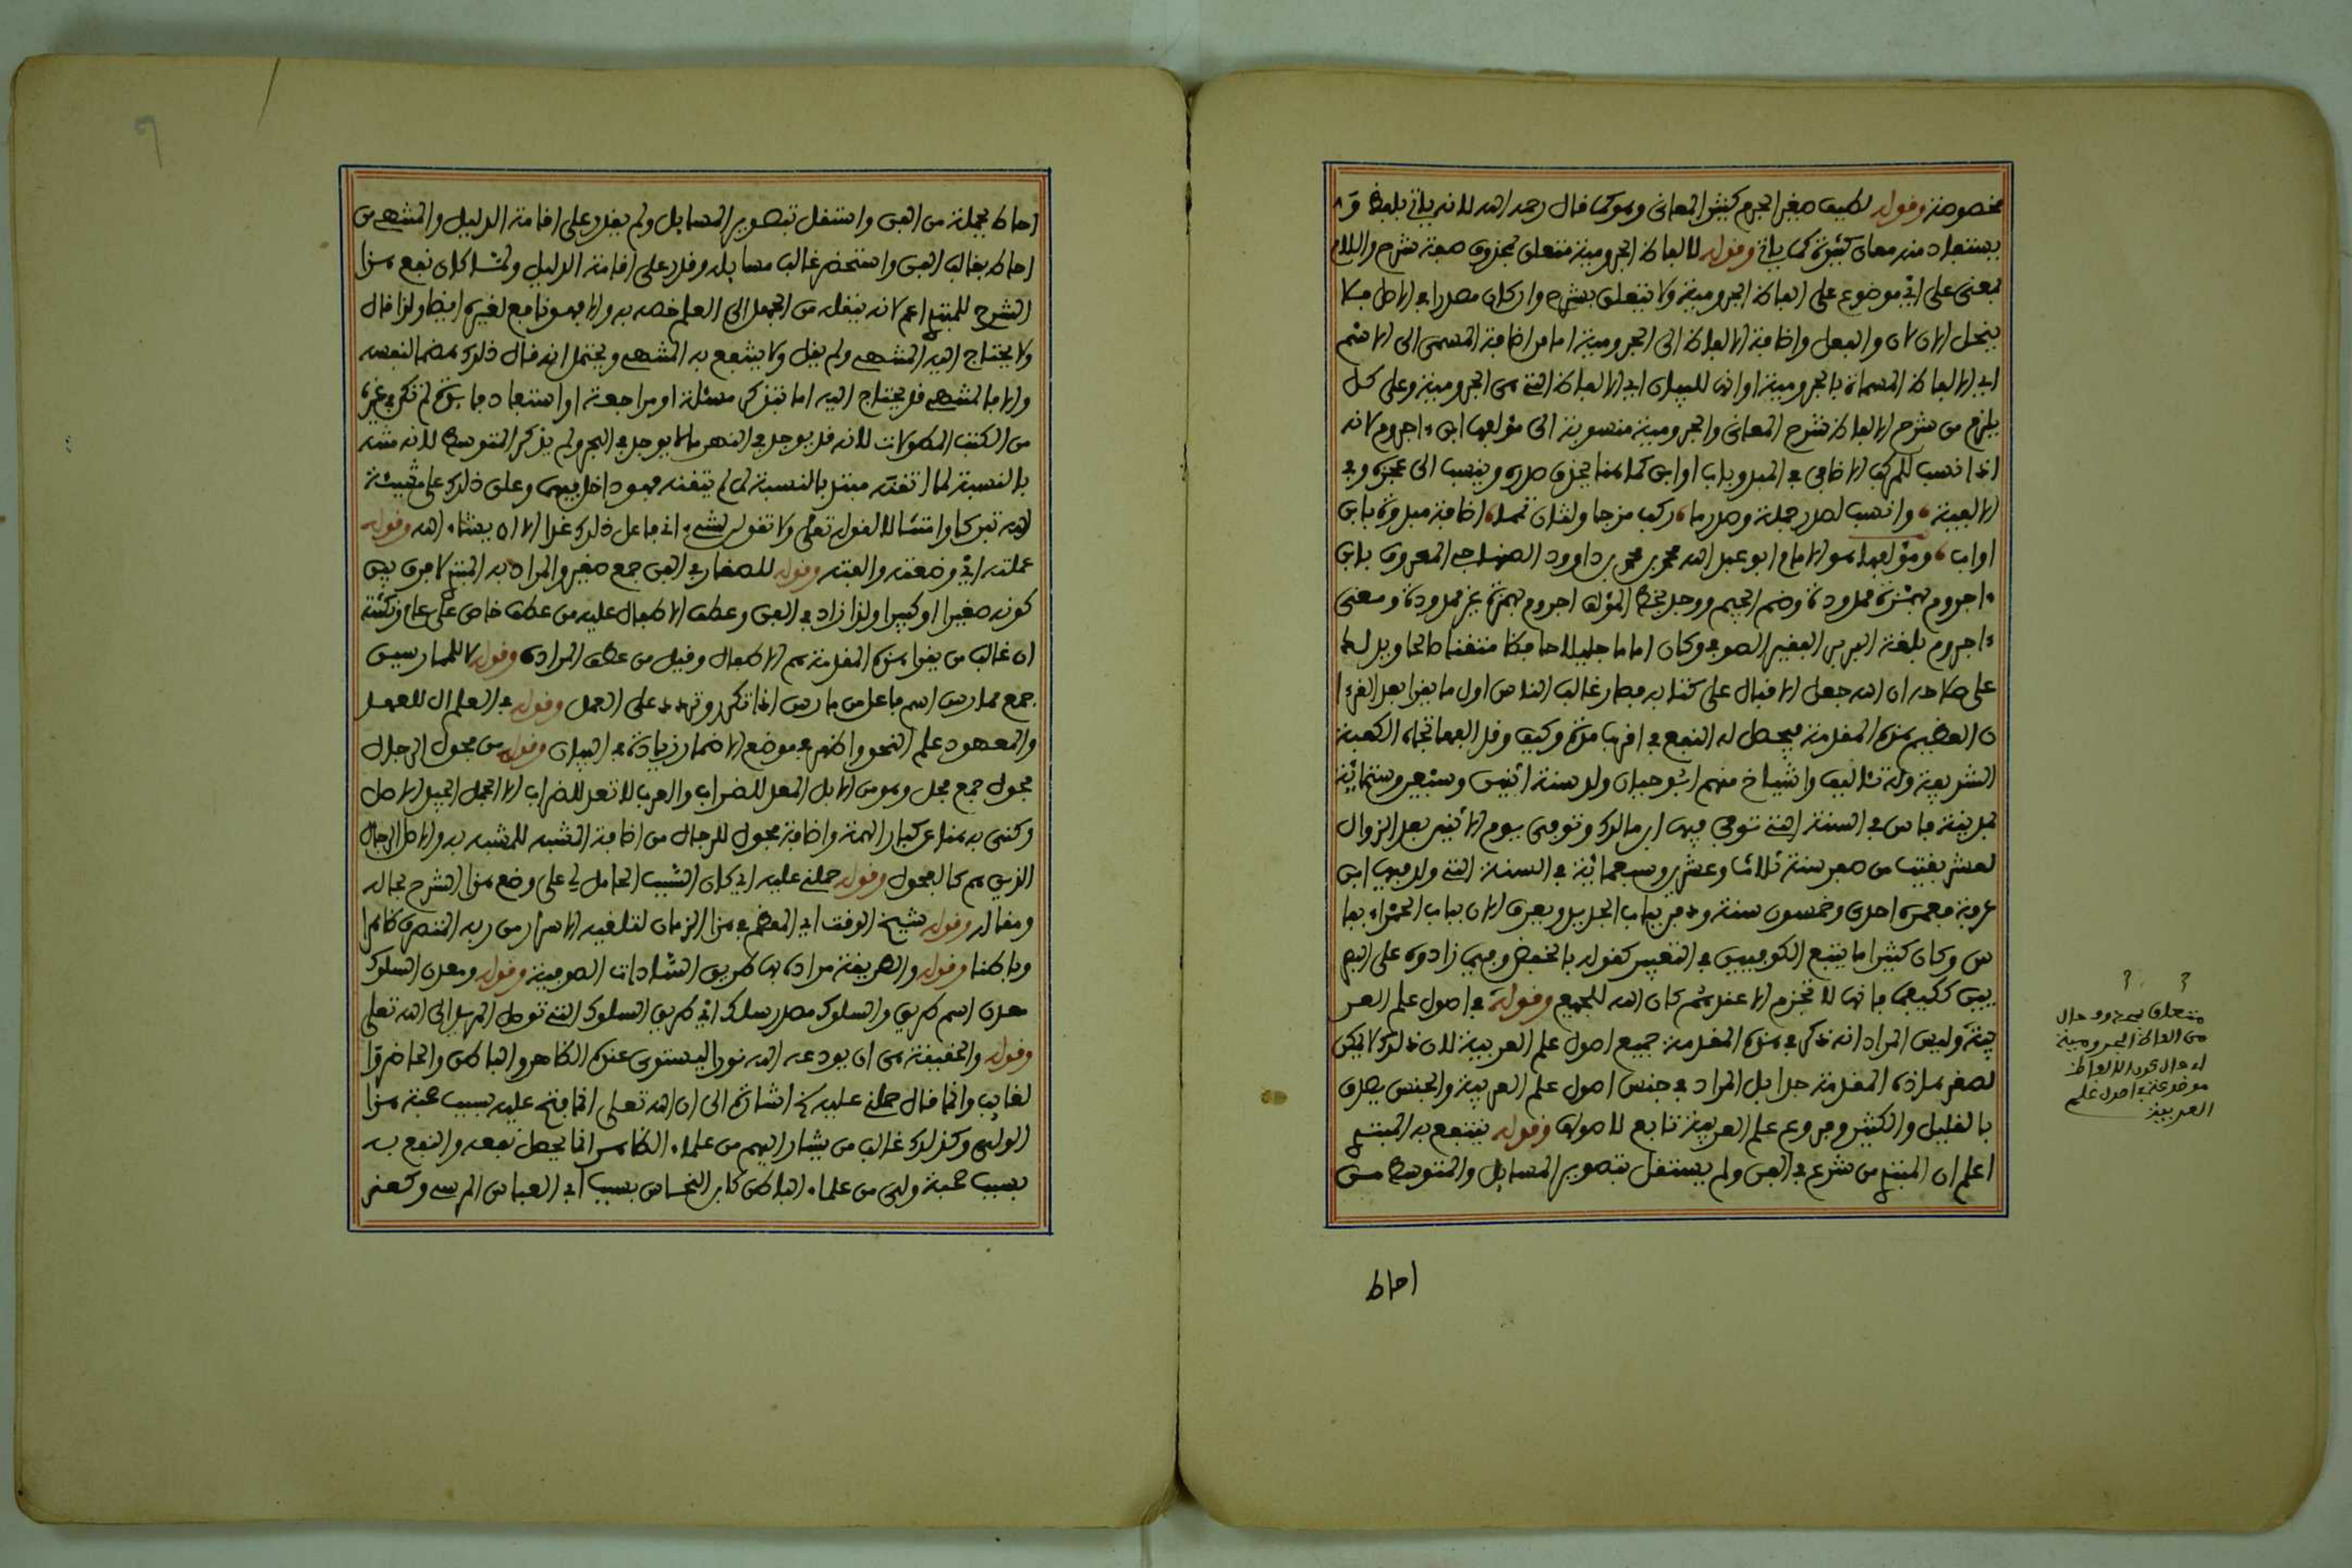 مخصوصة وقوله لطيف صغير الجرم كثير المعانى وهو كما قال رحمه الله لانه ياتي بلفظ
يستفاد منه معان كثيرة كما ياتي وقوله لالفاظ الجرومية متعلق بمحذوف صفة شرح واللام
بمعنى على اي موضوع على الفاظ الجرومية ولا يتعلق بشرح وان كان مصدرا في الاصل
ينحل الى ان والفعل واضافة الالفاظ الى الجرومية اما من اضافة المسمى الى الاسم
اي الالفاظ المسماة بالجرومية او انها للبيان اي الالفاظ التي هي الجرومية وعلى كل
يلزم من شرح الالفاظ شرح المعانى والجرومية منسوبة الى مؤلفها ابن ءاجروم لانه
اذا نسب للمركب الاضافي المبدو باب او ابن كما هنا يحذف صدره وينسب الى عجزه وفي
الالفية وانسب لصدر جملة وصدر ما ركب مزجا ولثان تمما اضافة مبدوة بابن
او اب ومؤلفها هو الامام ابو عبد الله محمد بن محمد بن داوود الصنهاجي المعروف بابن
ءاجروم بهمزة ممدودة وضم الجيم ووجد بخط المؤلف اجروم بهمزة غير ممدودة ومعنى
ءاجروم بلغة البربر الفقير الصوفي وكان اماما جليلا حافظا متفننا صالحا ويدل لها
على صلاحه ان الله جعل الاقبال على كتابه فصار غالب الناس اول ما يقرا بعد القرءا
ن العظيم هذه المقدمة فيحصل له النفع في اقرب مدة وكيف وقد الفها تجاه الكعبة
الشريفة وله تئاليف واشياخ منهم ابو حيان ولد سنة اثنين وسبعين وستمائة
بمدينة فاس في السنة التي توفي فيها ابن مالك وتوفى يوم الاثنين بعد الزوال
لعشر بقيت من صفر سنة ثلاثا وعشرين وسبعمائة في السنة التي ولد فيها ابن
عرفة فعمره احدى وخمسون سنة ودفن بباب الجديد ويعرف الان بباب الحمراء بفا
س وكان كثيرا ما يتبع الكوفيين في التعبير كقوله بالخفض وفيما زادوه على البصر
يين ككيفما فانها لا تجزم الا عندهم كان الله للجميع وقوله في اصول علم العر
بية وليس المراد انه ذكر في هذه المقدمة جميع اصول علم العربية لان ذلك لا يكن
لصغر هاذه المقدمة جدا بل المراد في جنس اصول علم العربية والجنس يصدق
بالقليل والكثير وفروع علم العربية تابع لاصولها وقوله ينتفع به المبتدي
اعلم ان المبتدي من شرع في الفن ولم يستقل بتصوير المسايل والمتوسط من
احاط
متعلق بمحذوف حال
من الفاظ الجرومية
اي حال كون الالفاظ
موضوعة في اصول علم
العربية
احاط بجملة من الفن واستقل بتصوير المسايل ولم يقدر على اقامة الدليل والمنتهي من
احاط بغالب الفن واستحضر غالب مسايله وقدر على اقامة الدليل ولما كان نفع هذا
الشرح للمبتدي اعم لانه ينقله من الجهل الى العلم خصه به والا فهو نافع لغيره ايضا ولذا قال
ولا يحتاج اليه المنتهي ولم يقل ولا ينتفع به المنتهي ويحتمل انه قال ذلك هضما لنفسه
والا فالمنتهي قد يحتاج اليه اما بتذكر مسئلة او مراجعة او استفاد فائدة لم تذكر في غيره
من الكتب المطولات لانه قد يوجد في النهر ما لا يوجد في البحر ولم يذكر المتوسط لانه منته
بالنسبة لما اتقنه مبتدي بالنسبة لما لم يتقنه فهو داخل فيهما وعلق ذلك على مشيئة
الله تبركا وامتثالا لقوله تعالى ولا تقولن لشيء اني فاعل ذلك غدا الا ان يشاء الله وقوله
عملته اي وضعته والفته وقوله للصغار في الفن جمع صغير والمراد به المبتدي لا فرق بين
كونه صغيرا او كبيرا ولذا زاد في الفن وعطف الاطفال عليه من عطف خاص على عام ونكتته
ان غالب من يقرا هذه المقدمة هم الاطفال وقيل من عطف المرادف وقوله لا للممارسين
جمع ممارس اسم فاعل من مارس اذا تكرر وتردد على العمل وقوله في العلم ال للعهد
والمعهود علم النحو واظهر في موضع الاضمار زيادة في البيان وقوله من فحول الرجال
فحول جمع فحل وهو من الابل المعد للضراب والعرب لا تعد للضراب الا الفحل الجيد الاصل
وكنى به هنا عن كبار الهمة واضافة فحول للرجال من اضافة المشبه للمشبه به والاصل الرجال
الذين هم كالفحول وقوله حملني عليه اي كان السبب الحامل لي على وضع هذا الشرح بحاله
ومقاله وقوله شيخ الوقت اي المعظم في هذا الزمان لتلقيه الاسرار من ربه المتصرف ظاهرا
وباطنا وقوله والطريقة مراده بها طريق السادات الصوفية وقوله ومعدن السلوك
معدن اسم طريق والسلوك مصدر سلك اي طريق السلوك التي توصل المريد الى الله تعالى
وقوله والحقيقة هي ان يودعه الله نورا ليستوى عنده الظاهر والباطن والحاضر وا
لغايب وانما قال حملني عليه اشارة الى ان الله تعالى انما فتح عليه بسبب محبة هذا
الولي وكذلك غالب من يشار اليهم من علماء الظاهر انما يحصل نفعه والنفع به
بسبب محبة ولي من علماء الباطن كابن النحاس بسبب ابي العباس المرسي وكعز